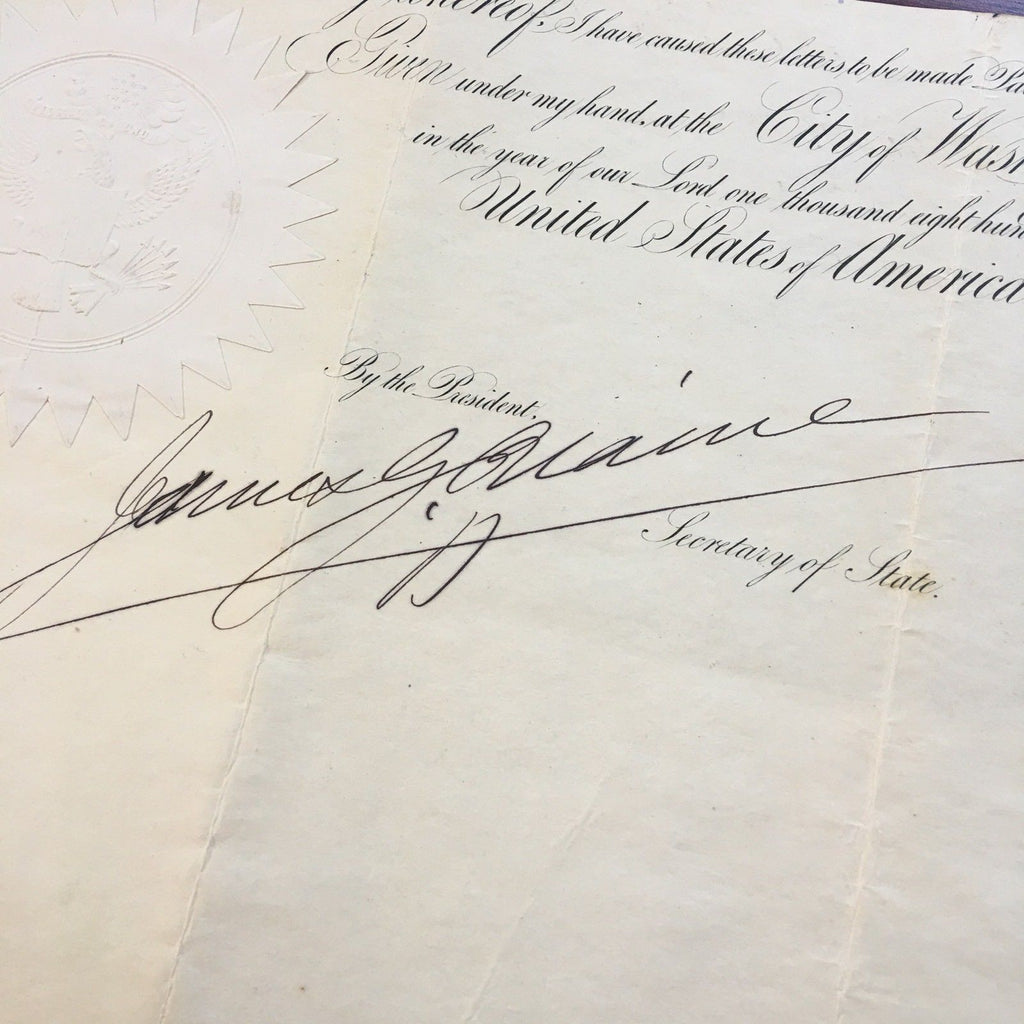 I have caused these letters to be made
Given under my hand, at the City of
in the year of our Lord one thousand eight
United States of America
By the President,
James G. Blaine
Secretary of State.